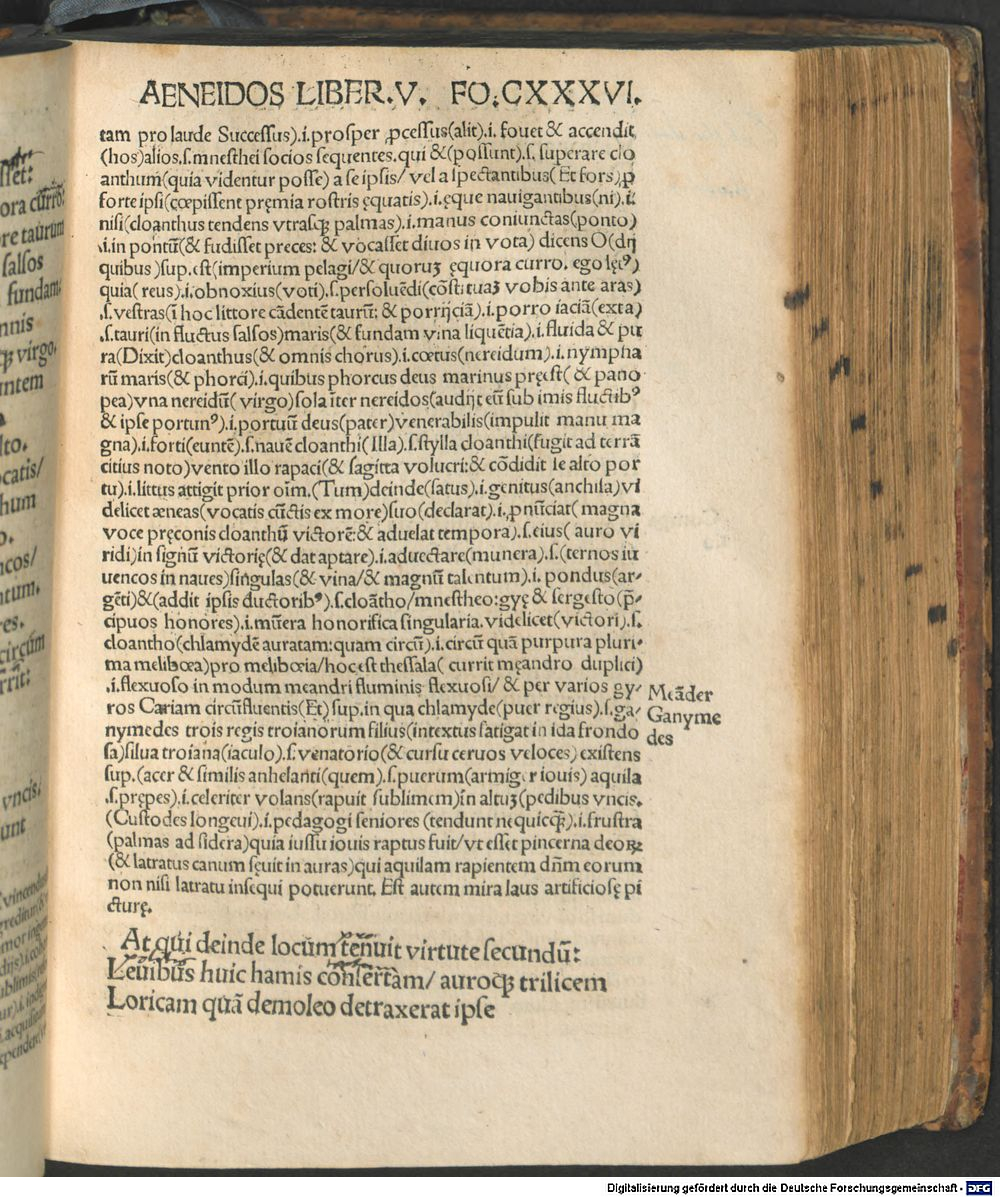 AENEIDOS LIBER.V. FO.CXXXVI.
tam pro laude Successus).i.prosper ꝓcessus(alit).i. fouet & accendit
(hos)alios.s.mnesthei socios sequentes. qui &(possunt).s. superare clo
anthum(quia videntur posse) a se ipsis/ vel a spectantibus(Et fors).ꝓ
forte ipsi(cœpissent pręmia rostris ęquatis).i.ęque nauigantibus(ni).i.
nisi(cloanthus tendens vtrasqꝫ palmas).i.manus coniunctas(ponto)
.i.in pontū(& fudisset preces: & vocasset diuos in vota) dicens O(dij
quibus)sup.est(imperium pelagi/& quoruꝫ ęquora curro. ego lętꝰ)
quia(reus).i.obnoxius(voti).s.persoluēdi(cōstituaꝫ vobis ante aras)
.s.vestras(ī hoc littore cādentē taurū: & porrijciā).i.porro iaciā(exta)
.s.tauri(in fluctus salsos)maris(& fundam vina liquētia).i.fluida & pu
ra(Dixit)cloanthus(& omnis chorus).i.cœtus(nereidum).i.nympha
rū maris(& phorci).i.quibus phorcus deus marinus pręest(& pano
pea)vna nereidū(virgo)sola īter nereidos(audijt eū sub imis fluctibꝰ
& ipse portunꝰ).i.portuū deus(pater)venerabilis(impulit manu ma
gna).i.forti(euntē).s.nauē cloanthi(Illa).s.scylla cloanthi(fugit ad terrā
citius noto)vento illo rapaci(& sagitta volucri:& cōdidit se alto por
tu).i.littus attigit prior oīm.(Tum)deinde(satus).i.genitus(anchisa)vi
delicet æneas(vocatis cūctis ex more)suo(declarat).i.ꝓnūciat(magna
voce pręconis cloanthū victorē:& aduelat tempora).s.eius(auro vi
ridi)in signū victorię(& dat aptare).i.aduectare(munera).s.(ternos iu
uencos in naues)singulas(& vina/& magnū talentum).i. pondus(ar⸗
gēti)&(addit ipsis ductoribꝰ).s.cloātho/mnestheo:gyę & sergesto(p̄⸗
cipuos honores).i.mūera honorifica singularia. videlicet(victori).s.
cloantho(chlamydē auratam:quam circū).i.circū quā purpura pluri⸗
ma melibœa)pro melibœia/hoc est thessala(currit męandro duplici)
.i.flexuoso in modum meandri fluminis flexuosi/ & per varios gy⸗
ros Cariam circūfluentis(Et)sup.in qua chlamyde(puer regius).s.ga⸗
nymedes trois regis troianorum filius(intextus fatigat in ida frondo
sa)silua troiana(iaculo).s.venatorio(& cursu ceruos veloces) existens
sup.(acer & similis anhelanti(quem).s.puerum(armiger iouis) aquila
.s.prępes).i.celeriter volans(rapuit sublimem)in altuꝫ(pedibus vncis.
(Custodes longeui).i.pedagogi seniores (tendunt nequicqꝫ).i.frustra
(palmas ad sidera)quia iussu iouis raptus fuit/vt esset pincerna deoꝝ
(& latratus canum sęuit in auras)qui aquilam rapientem dn̄m eorum
non nisi latratu insequi potuerunt. Est autem mira laus artificiosę pi
cturę.
Meāder
Ganyme
des
At qui deinde locum tenuit virtute secundū:
Leuibus huic hamis consertam/ auroqꝫ trilicem
Loricam quā demoleo detraxerat ipse
Digitalisierung gefördert durch die Deutsche Forschungsgemeinschaft - DFG